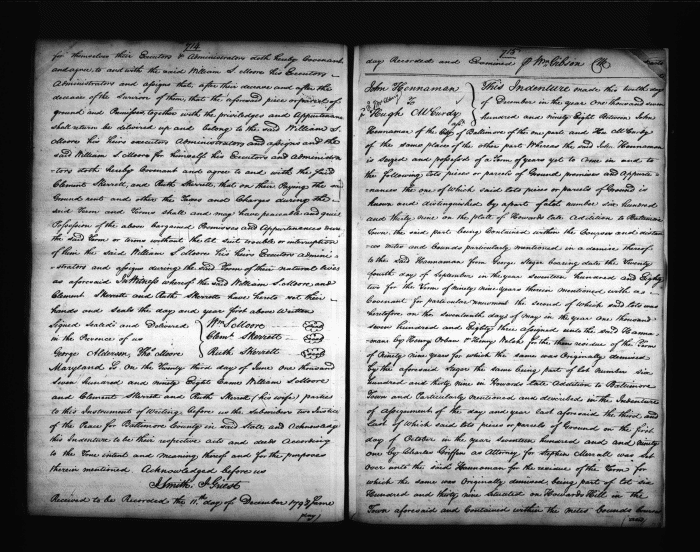 714
for themselves their Executors & Administrators doth hereby Covenant
and agree to and with the said William S. Moore his Executors
Administrators and assigns that, after their decease and after the
decease of the survivor of them, that the aforesaid piece or parcel of
ground and Premises together with the priviledges and Appurtenances
shall return be delivered up and belong to the said William S.
Moore his heirs executors Administrators and assigns and the
said William S Moore for himself his Executors and Administra-
tors doth hereby Covenant and agree to and with the said
Clement Skerrett, and Ruth Skerrett, that on their Paying the
Ground rents and other the Taxes and Charges during the
said Term and Terms shall and may have peaceable and quiet
Possession of the above bargained Premises and Appurtenances
the said Term or terms without the let suit trouble or interruption
of him the said William S Moore his heirs Executors Adminis-
-trators and assigns during the said Term of their natural lives
as aforesaid In Witness whereof the said William S Moore and
Clement Skerrett and Ruth Skerrett have hereto set their
hands and Seals the day and year first above Written
Signed Sealed and Delivered
in the Presence of us
George Alderson, Tho. Moore
Wm S Moore
Clemt. Skerrett
Ruth Skerrett
Maryland On the Twenty third day of June one thousand
Seven hundred and ninety Eight Came William S Moore
and Clement Skerrett and Ruth Skerrett (his wife) parties
to this Instrument of Writing before us the Subscribers two Justices
of the Peace for Baltimore County in said State and Acknowledge
this Indenture to be their respective acts and deeds According
to the true intent and meaning thereof and for the purposes
therein mentioned. Acknowledged before us
J Smith. J. Gist
Received to be Recorded the 11th day of December 1798 Same
day
715
day Recorded and Examined Wm Gibson Clk
John Hannaman
to
Hugh McCurdy
This Indenture made this twelfth day
of December in the year One thousand seven
hundred and ninety Eight Between John
Hannaman of the City of Baltimore of the one part and Hu. McCurdy
of the same place of the other part Whereas the said John Hannaman
is Seized and possessed of a Term of years yet to Come in and to
the following lots pieces or parcels of Ground premises and Appurte-
nances the one of which said lots pieces or parcels of Ground is
known and distinguished by apart of lot number six hundred
and thirty nine on the plat of Howards late Addition to Baltimore
Town, the said part being Contained within the Courses and distan-
ces metes and bounds particularly mentioned in a demise thereof
to the said Hannaman from George Steyer bearing date the Twenty
fourth day of September in the year seventeen hundred and Eighty
two for the Term of ninety nine years therein mentioned with a
Covenant for particular renewment the second of which said lots was
heretofore, on the seventeenth day of may in the year One thousand
seven hundred and Eighty three assigned unto the said Hanna-
man by Henry Welsh for the then residue of the Term
of Ninety nine years for which the same was Originally demised
by the aforesaid Steyer the same being part of lot number six
hundred and thirty nine in Howards late Addition to Baltimore
Town and Particularly mentioned and described in the Indenture
of assignment of the day and year last aforesaid the third and
last of which said lots pieces or parcels of Ground on the first
day of October in the year seventeen hundred and ninety
one by Charles Griffin as Attorney for Stephen was Set
over unto the said Hannaman for the residue of the Term for
which the same was Originally demised being part of lot six
Hundred and thirty nine situated on Howards Hill in the
Town aforesaid and Contained within the metes bounds